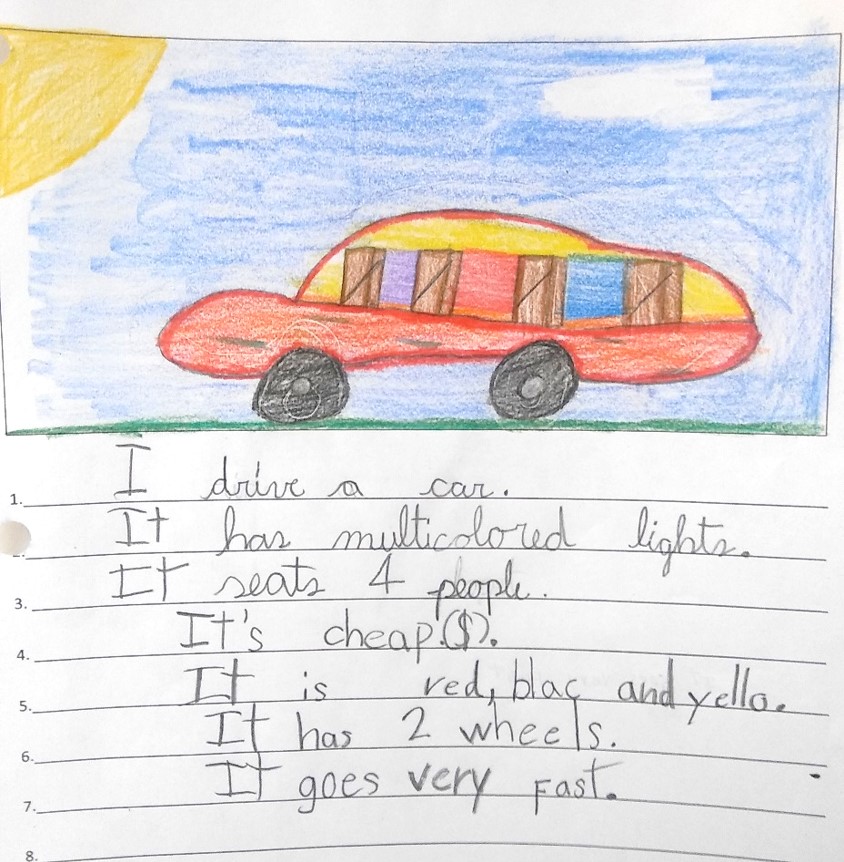 1. I drive a car.
It has multicolored lights.
3. It seats 4 people.
4. It's cheap ($).
5. It is red, blac and yello.
6. It has 2 wheels.
7. It goes very Fast.
8.